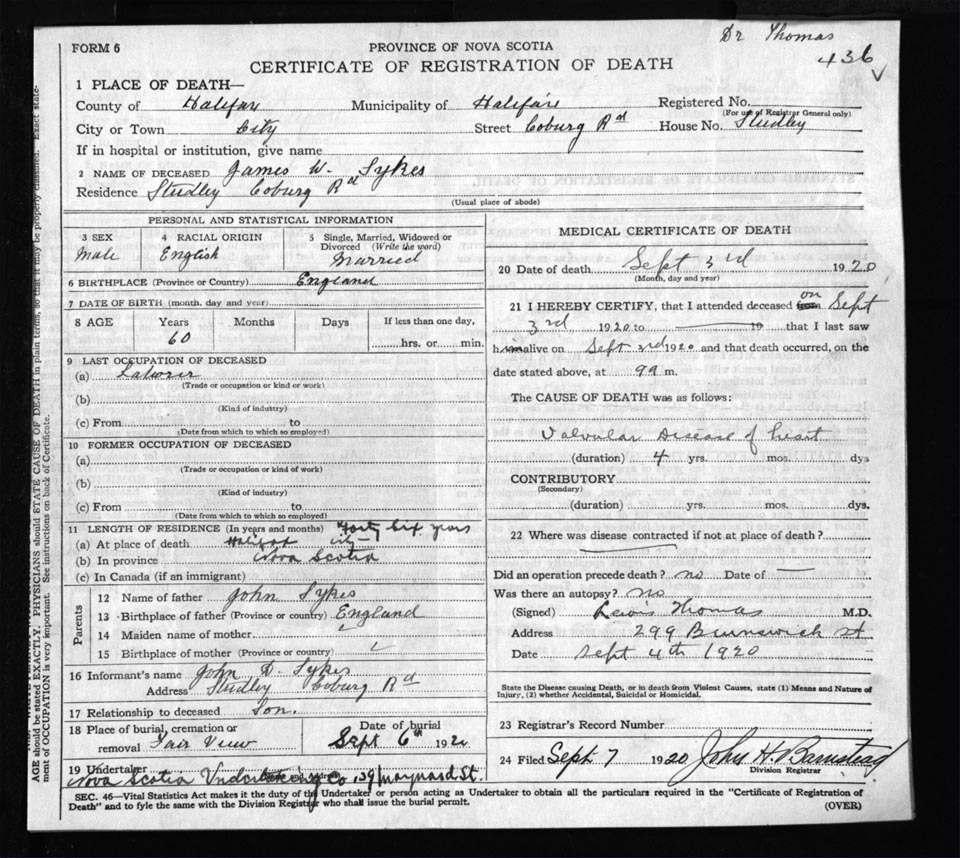 Dr Thomas
436
FORM 6
PROVINCE OF NOVA SCOTIA
CERTIFICATE OF REGISTRATION OF DEATH
1 PLACE OF DEATH—
County of Halifax Municipality of Halifax Registered No.
(For use of Registrar General only)
City or Town City Street Coburg Rd House No. Studley
If in hospital or institution, give name
2 NAME OF DECEASED James W. Sykes
Residence Studley Coburg Rd
(Usual place of abode)
PERSONAL AND STATISTICAL INFORMATION
3 SEX 4 RACIAL ORIGIN 5 Single, Married, Widowed or Divorced (Write the word)
Male English Married
6 BIRTHPLACE (Province or Country) England
7 DATE OF BIRTH (month, day and year)
8 AGE Years Months Days If less than one day,
60 hrs. or min.
9 LAST OCCUPATION OF DECEASED
(a) Laborer
(Trade or occupation or kind of work)
(b)
(Kind of industry)
(c) From to
(Date from which to which so employed)
10 FORMER OCCUPATION OF DECEASED
(a)
(Trade or occupation or kind of work)
(b)
(Kind of industry)
(c) From to
(Date from which to which so employed)
11 LENGTH OF RESIDENCE (In years and months) Forty Six years
(a) At place of death Halifax city
(b) In province Nova Scotia
(c) In Canada (if an immigrant)
Parents
12 Name of father John Sykes
13 Birthplace of father (Province or country) England
14 Maiden name of mother
15 Birthplace of mother (Province or country)
16 Informant's name John D. Sykes
Address Studley Coburg Rd
17 Relationship to deceased Son.
18 Place of burial, cremation or Date of burial
removal Fair View Sept 6th 192
19 Undertaker
Nova Scotia Undertaking Co 139 Maynard St.
MEDICAL CERTIFICATE OF DEATH
20 Date of death Sept 3rd 1920
(Month, day and year)
21 I HEREBY CERTIFY, that I attended deceased from on Sept
3rd 1920 to 19 that I last saw
him alive on Sept 3rd 1920 and that death occurred, on the
date stated above, at m.
The CAUSE OF DEATH was as follows:
Valvular Disease of heart
(duration) 4 yrs. mos. dys
CONTRIBUTORY
(Secondary)
(duration) yrs. mos. dys.
22 Where was disease contracted if not at place of death?
Did an operation precede death? no Date of —
Was there an autopsy? no
(Signed) Lewis Thomas M.D.
Address 299 Brunswick st
Date Sept 4th 1920
State the Disease causing Death, or in death from Violent Causes, state (1) Means and Nature of
Injury, (2) whether Accidental, Suicidal or Homicidal.
23 Registrar's Record Number
24 Filed Sept 7 1920 John H. Barnstead
Division Registrar
SEC. 46—Vital Statistics Act makes it the duty of the Undertaker or person acting as Undertaker to obtain all the particulars required in the "Certificate of Registration of
Death" and to fyle the same with the Division Registrar who shall issue the burial permit.
(OVER)
AGE should be stated EXACTLY. PHYSICIANS should STATE CAUSE OF DEATH in plain terms, so that it may be properly classified. Exact state-
ment of OCCUPATION is very important. See instructions on back of Certificate.